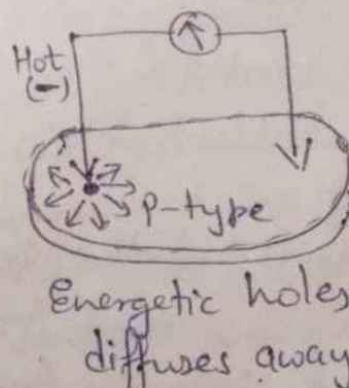 Hot
(-)
p-type
Energetic holes
diffuses away